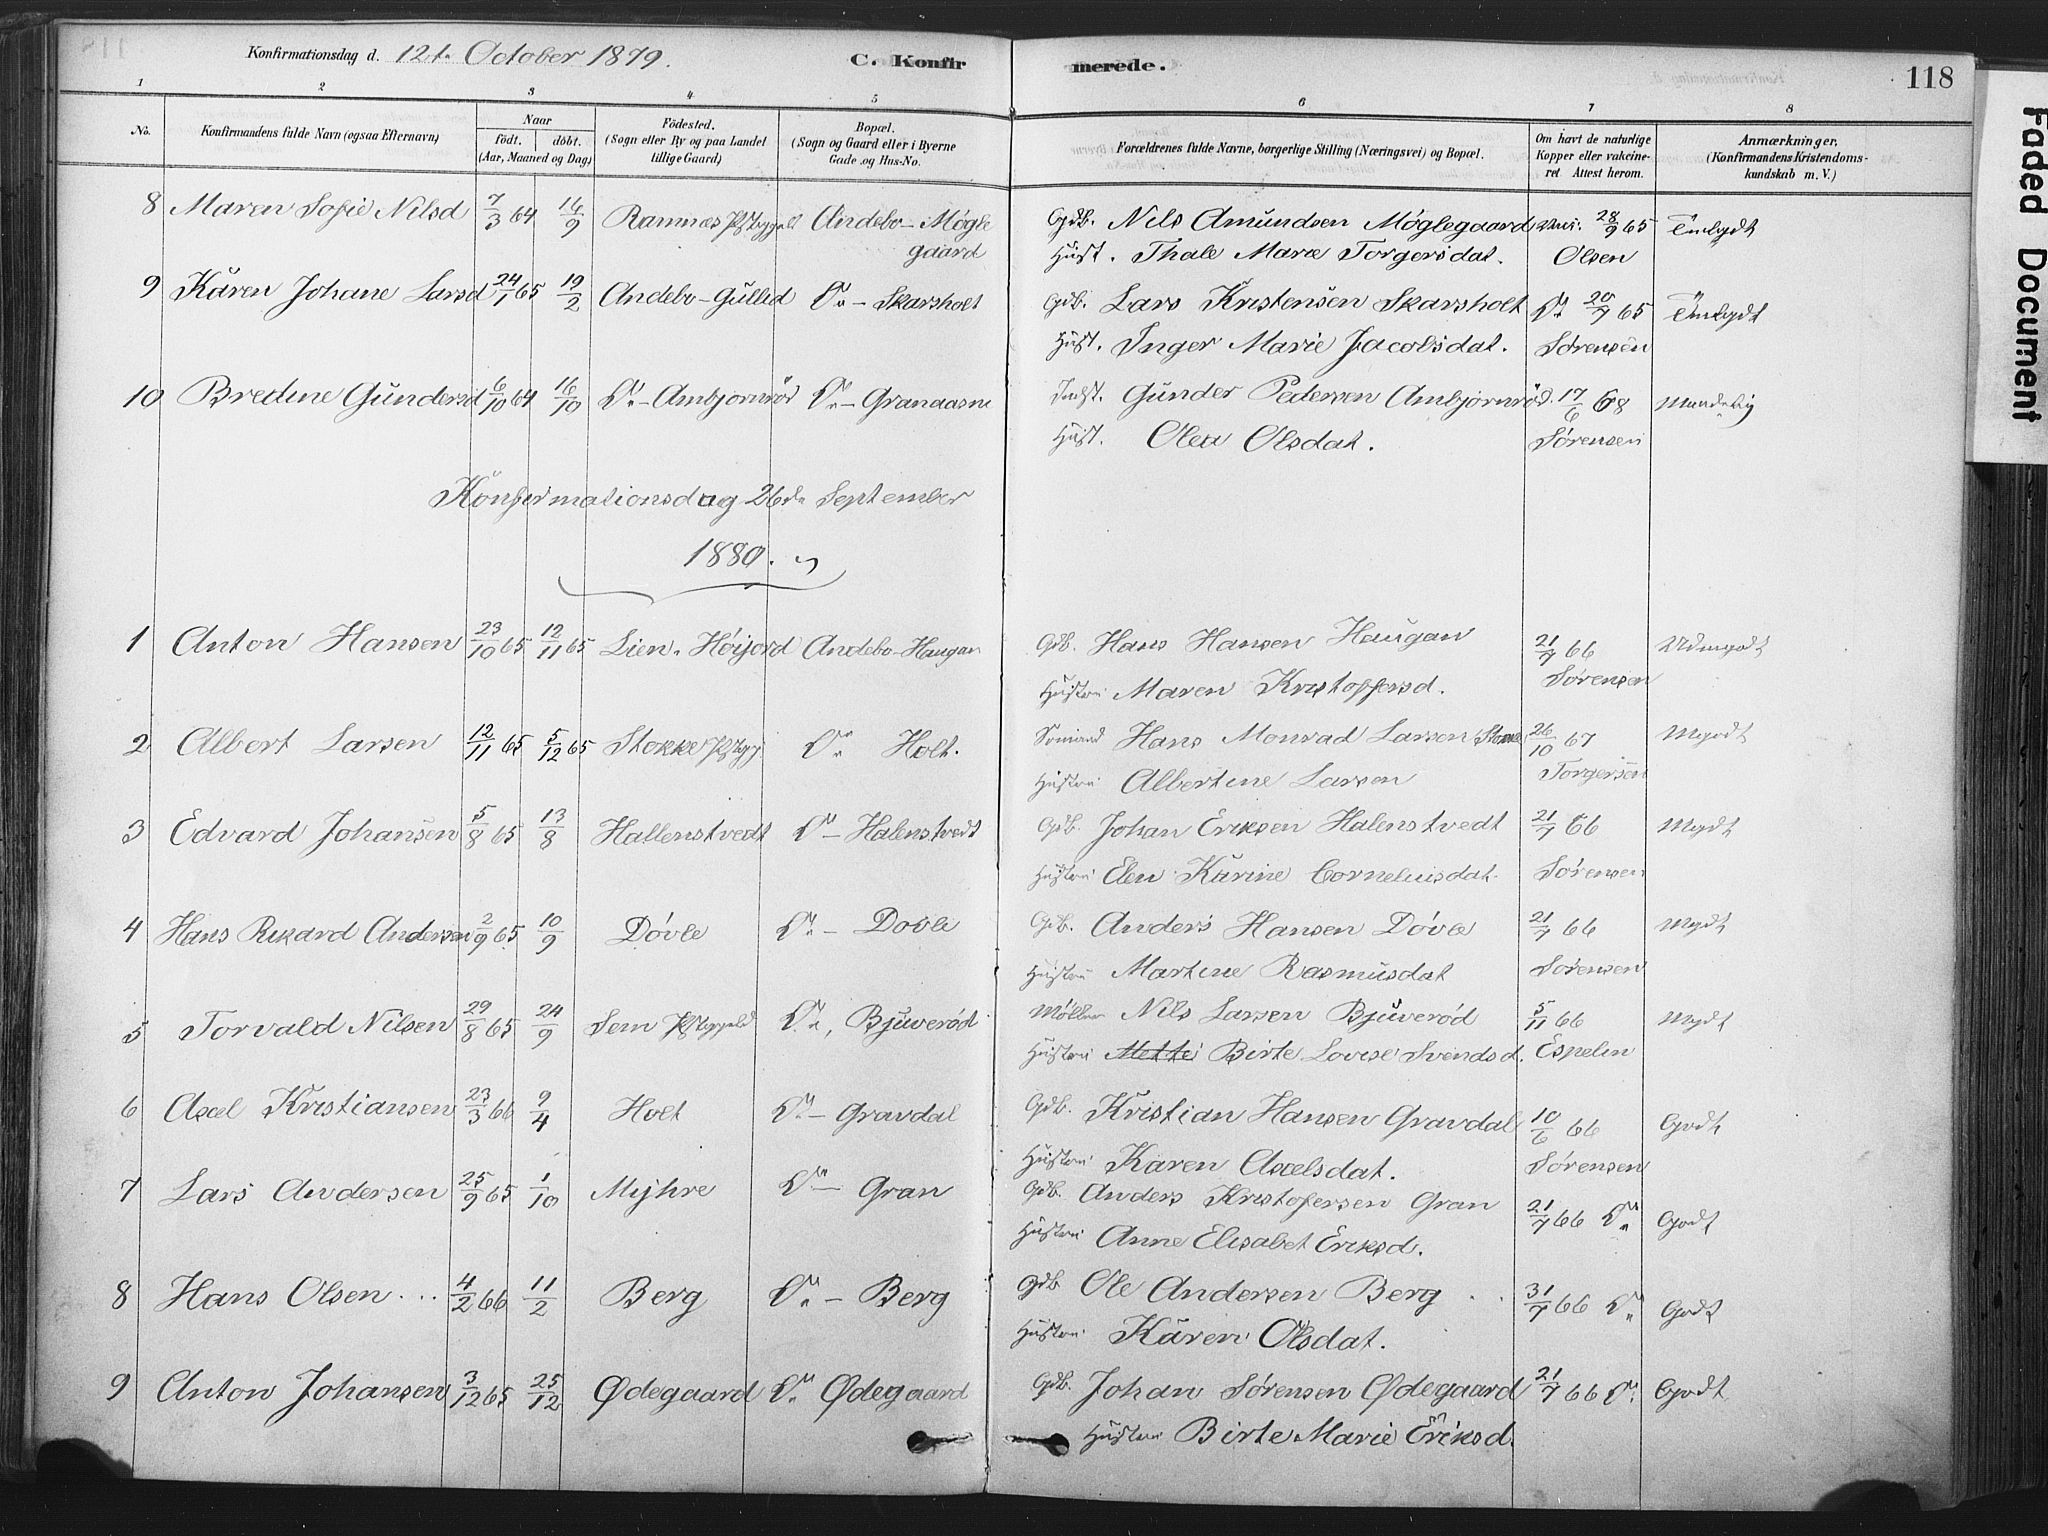 Konfirmationsdag d. 12te October 1879. C. Konfirmerede. 118
1 2 3 4 5 6 7 8
No. Konfirmandens fulde Navn (ogsaa Efternavn) Naar født. døbt. (Aar, Maaned og Dag) Födested. (Sogn eller By og paa Landet tillige Gaard) Bopæl. (Sogn og Gaard eller i Byerne Gade og Hus-No. Forældrenes fulde Navne, borgerlige Stilling (Næringsvei) og Bopæl. Om havt de naturlige Kopper eller vakcineret Attest herom. Anmærkninger, (Konfirmandens Kristendomskundskab m. V.)
8 Maren Sofie Nilsd 7/3 64 16/9 Ramnes Andebo - Møglegaard Gdb. Nils Amundsen Møglegaard 28/9 65
Hust. Thale Marie Torgersdat. Olsen
9 Karen Johane Larsd 24/1 65 19/2 Andebo - Gullid Do - Skarsholt Gdb. Lars Kristensen Skarsholt Do 20/7 65
Hust. Inger Marie Jacobsdat. Sørensen
10 Bredine Gundersd 6/10 64 16/10 Do - Ambjørnrød Do - Granaasne Indst. Gunder Pedersen Ambjørnrød. 17/6 68
Hust. Olea Olsdat. Sørensen
Konfirmationsdag 26de September
1880.
1 Anton Hansen 23/10 65 12/11 65 Lien. Høijord Andebo - Haugan Gdb. Hans Hansen Haugan 21/7 66
Hustru Maren Kristoffersd. Sørensen
2 Albert Larsen 12/11 65 5/12 65 Stokke Prstgj Do Holt. Sømand Hans Monrad Larsen 26/10 67 Mgodt
Hustru Albertine Larsen Torgersen
3 Edvard Johansen 5/8 65 13/8 Hallenstvedt Do - Halenstvedt Gdb. Johan Eriksen Halenstvedt 21/7 66 Mgdt
Hustru Elen Karine Corneliusdat. Sørensen
4 Hans Rikard Andersen 2/9 65 10/9 Døvle Do - Dovle Gdb. Anders Hansen Døvle 21/7 66 Mgdt
Hustru Martine Rasmusdat Sørensen
5 Torvald Nilsen 29/8 65 24/9 Sem Prstegjeld Do, Bjuverød Møller Nils Larsen Bjuverød 5/11 66 Mgdt
Hustru Mette Birte Lovise Svendsd. Espelin
6 Axel Kristiansen 23/3 66 9/4 Holt Do - Gravdal Gdb. Kristian Hansen Gravdal 10/6 66 Godt
Hustru Karen Axelsdat. Sørensen
7 Lars Andersen 25/9 65 1/10 Myhre Do - Gran Gdb. Anders Kristofersen Gran 21/7 66 Do Godt
Hustru Anne Elisabet Eriksd.
8 Hans Olsen ... 4/2 66 11/2 Berg Do - Berg Gdb Ole Andersen Berg . . 31/7 66 Do Godt
Hustru Karen Olsdat.
9 Anton Johansen 3/12 65 25/12 Ødegaard Do Ødegaard Gdb. Johan Sørensen Ødegaard 21/7 66 Do Godt
Hustru Birte Marie Eriksd.
Faded Document